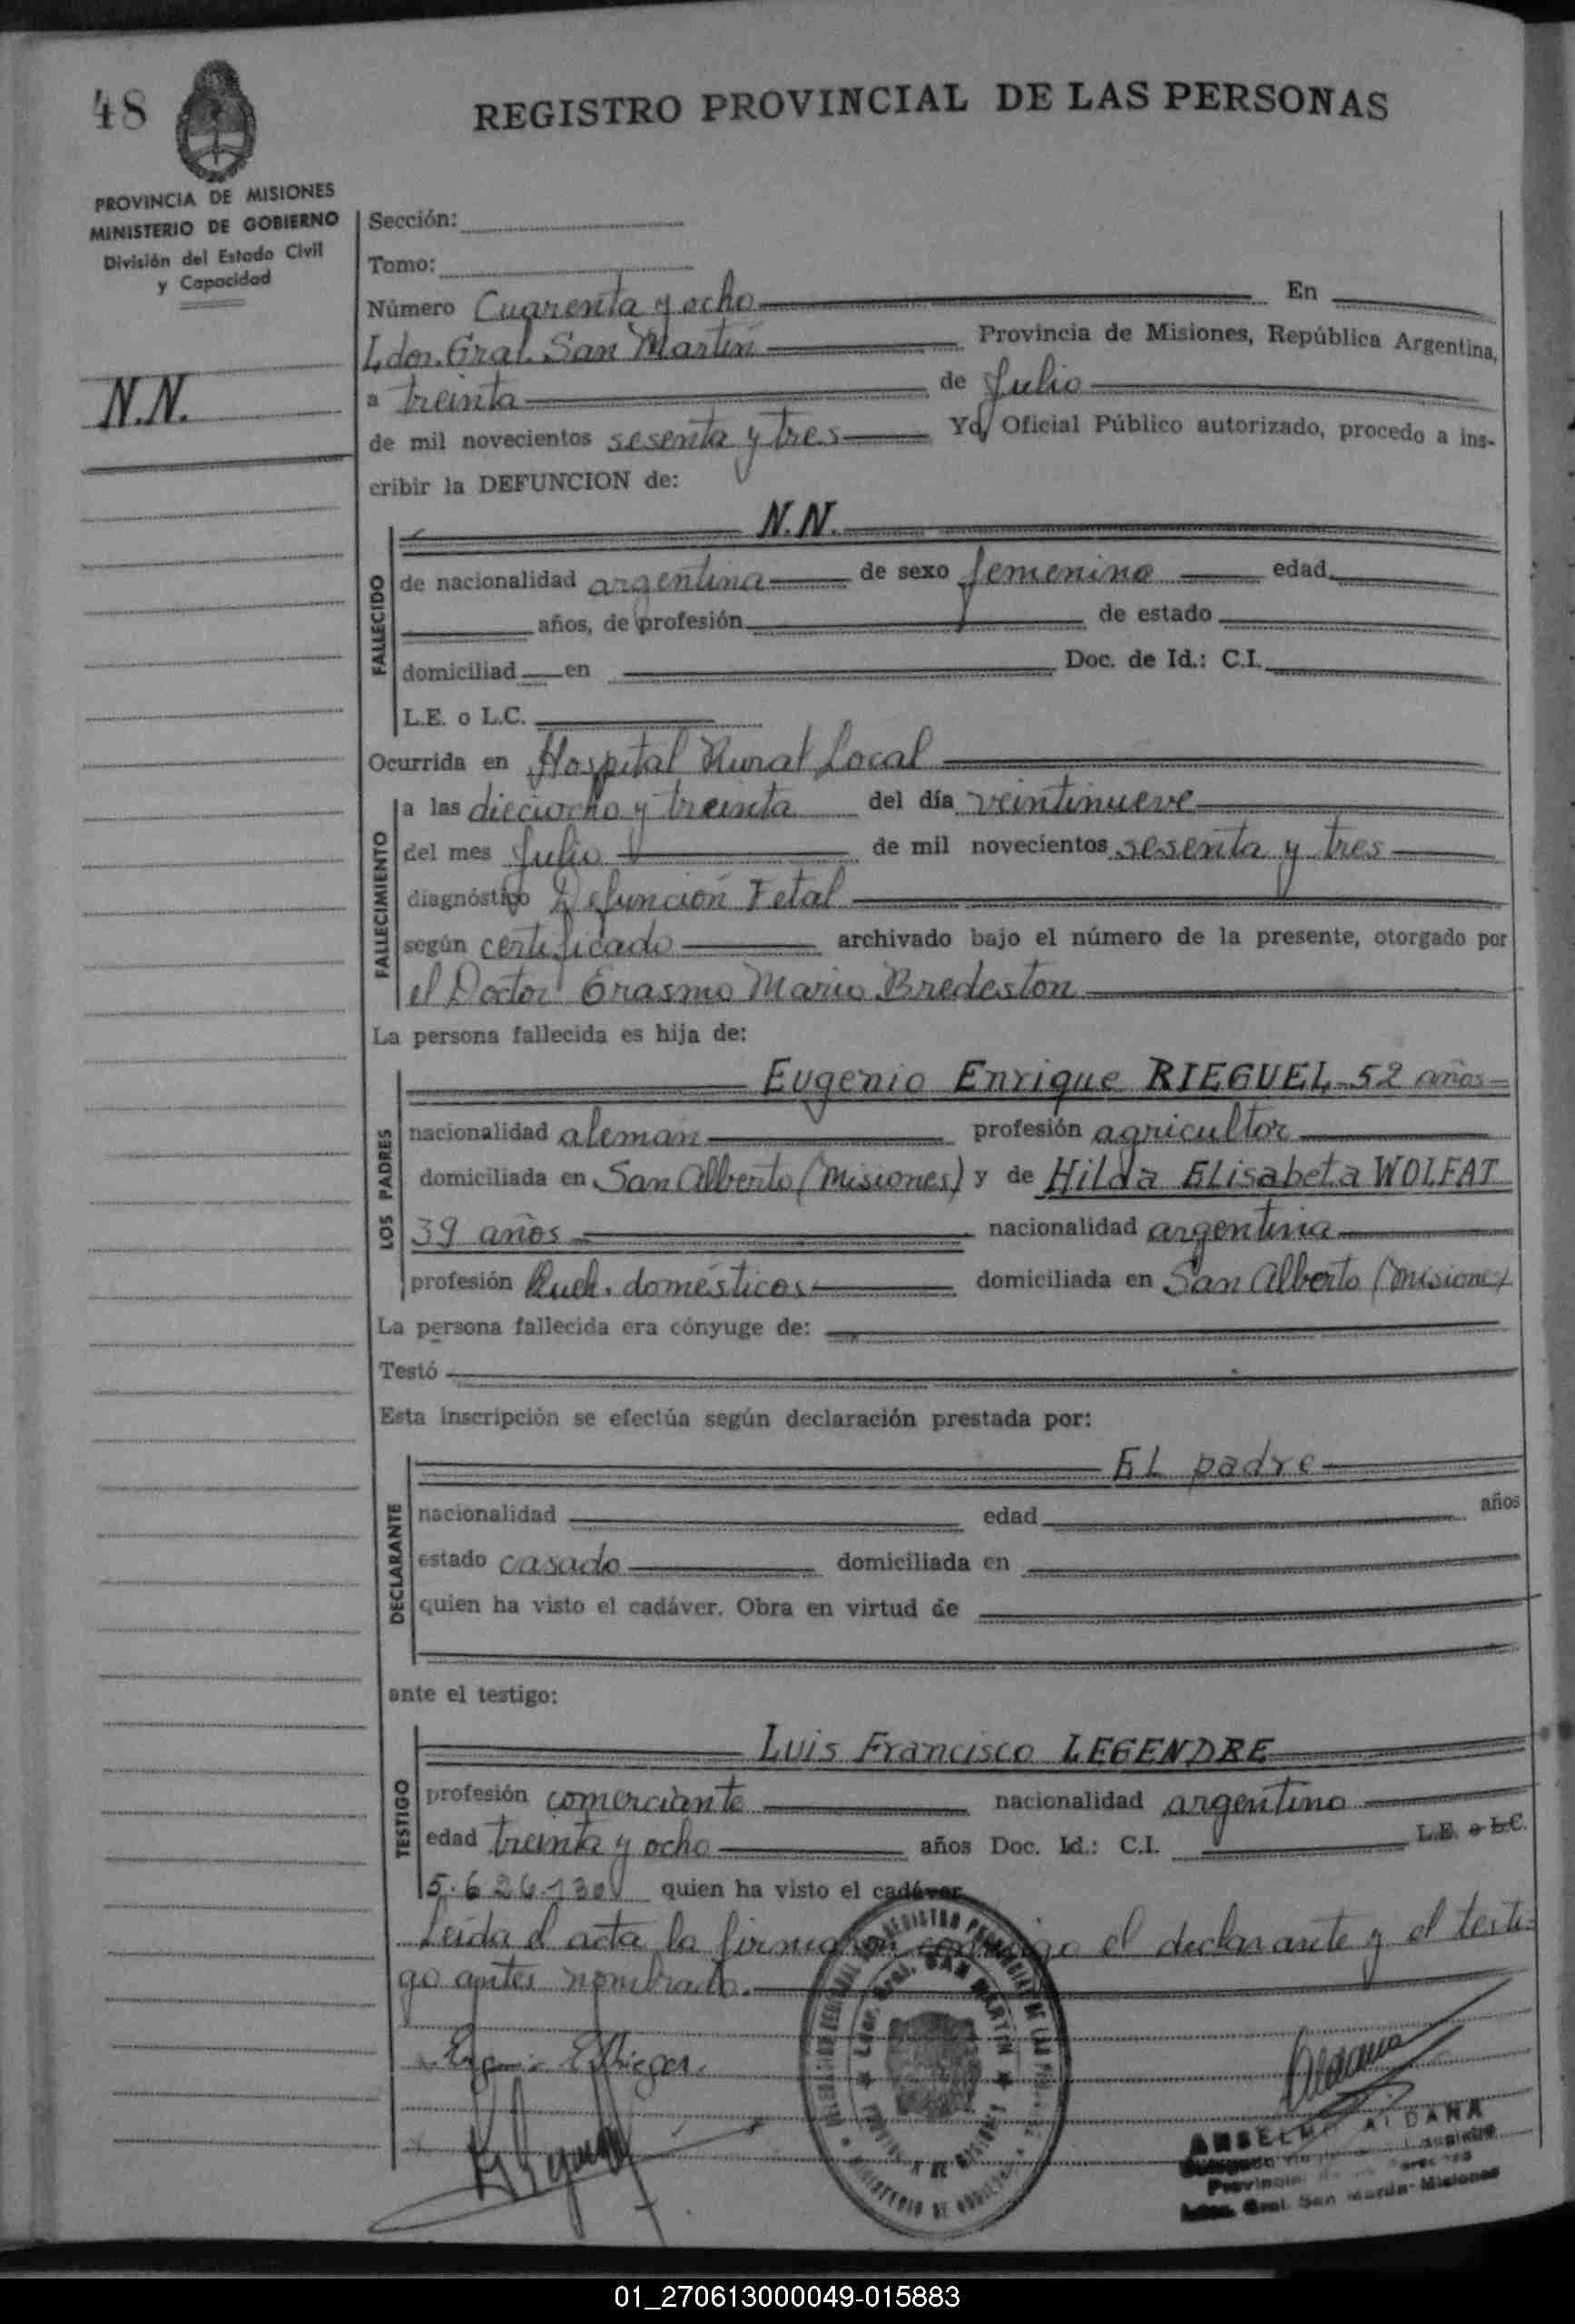 48
REGISTRO PROVINCIAL DE LAS PERSONAS
PROVINCIA DE MISIONES
MINISTERIO DE GOBIERNO
División del Estado Civil
y Capacidad
N.N.
Sección:
Tomo:
Número Cuarenta y ocho En
Ldor. Gral. San Martín Provincia de Misiones, República Argentina,
a treinta de Julio
de mil novecientos sesenta y tres Yo, Oficial Público autorizado, procedo a ins-
cribir la DEFUNCION de:
N.N.
FALLECIDO
de nacionalidad argentina de sexo femenino edad
años, de profesión de estado
domiciliad en Doc. de Id.: C.I.
L.E. o L.C.
Ocurrida en Hospital Rural Local
FALLECIMIENTO
a las dieciocho y treinta del día veintinueve
del mes Julio de mil novecientos sesenta y tres
diagnóstico Defunción Fetal
según certificado archivado bajo el número de la presente, otorgado por
el Doctor Erasmo Mario Bredeston
La persona fallecida es hija de:
LOS PADRES
Eugenio Enrique RIEGUEL-52 años
nacionalidad aleman profesión agricultor
domiciliada en San Alberto (Misiones) y de Hilda ELisabeta WOLFAT
39 años nacionalidad argentina
profesión Queh. domésticos domiciliada en San Alberto (Misiones)
La persona fallecida era cónyuge de:
Testó
Esta inscripción se efectúa según declaración prestada por:
DECLARANTE
EL padre
nacionalidad edad años
estado casado domiciliada en
quien ha visto el cadáver. Obra en virtud de
ante el testigo:
TESTIGO
Luis Francisco LEGENDRE
profesión comerciante nacionalidad argentino
edad treinta y ocho años Doc. Id.: C.I. L.E. o L.C.
5.626.130 quien ha visto el cadáver
Leida el acta la firmaron conmigo el declarante y el testi-
go antes nombrado.
ANSELMO ALDANA
Ldor. Gral. San Martín - Misiones
01_270613000049-015883